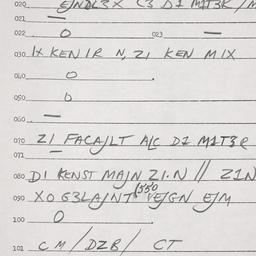 020 EJNDL3X C3 DI MIT3R / M
021 —
022 O 023 —
030 IX KEN IR N, ZI KEN MIX
040 O
050 O
060 —
070 ZI FACAJLT ALC DI MIT3R
071 —
080 DI KENST MAJN ZI·N // ZIN
090 XO G3LAJNT (550) VEJGN EJM
100 O
101 CM / DZB / CT